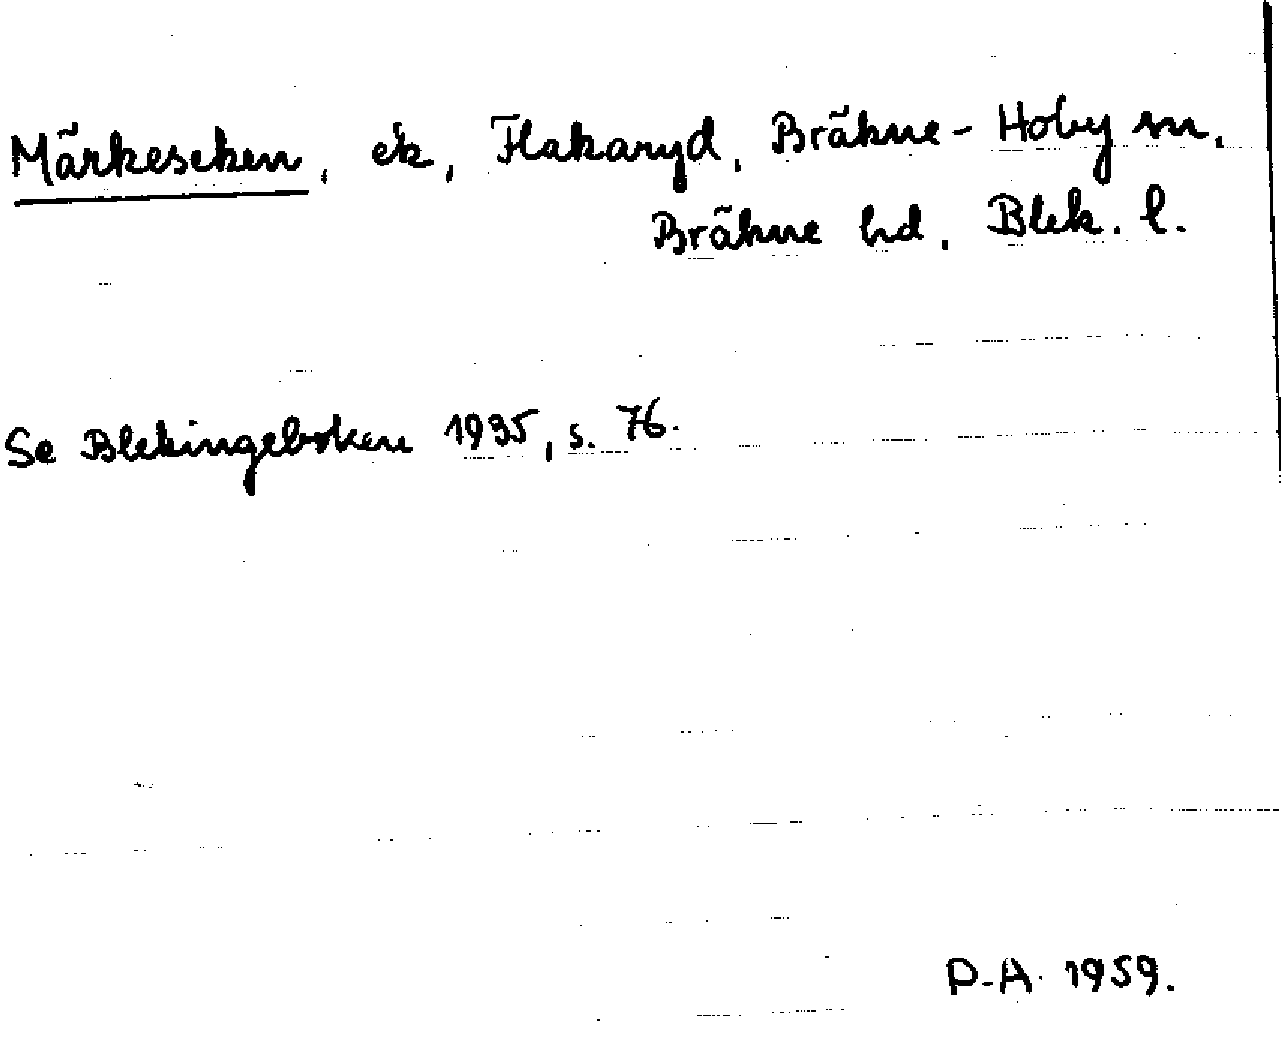 Märkeseken, ek, Flakaryd, Bräkne-Hoby sn,
Bräkne hd, Blek. l.
Se Blekingeboken 1935, s. 76.
P.A. 1959.